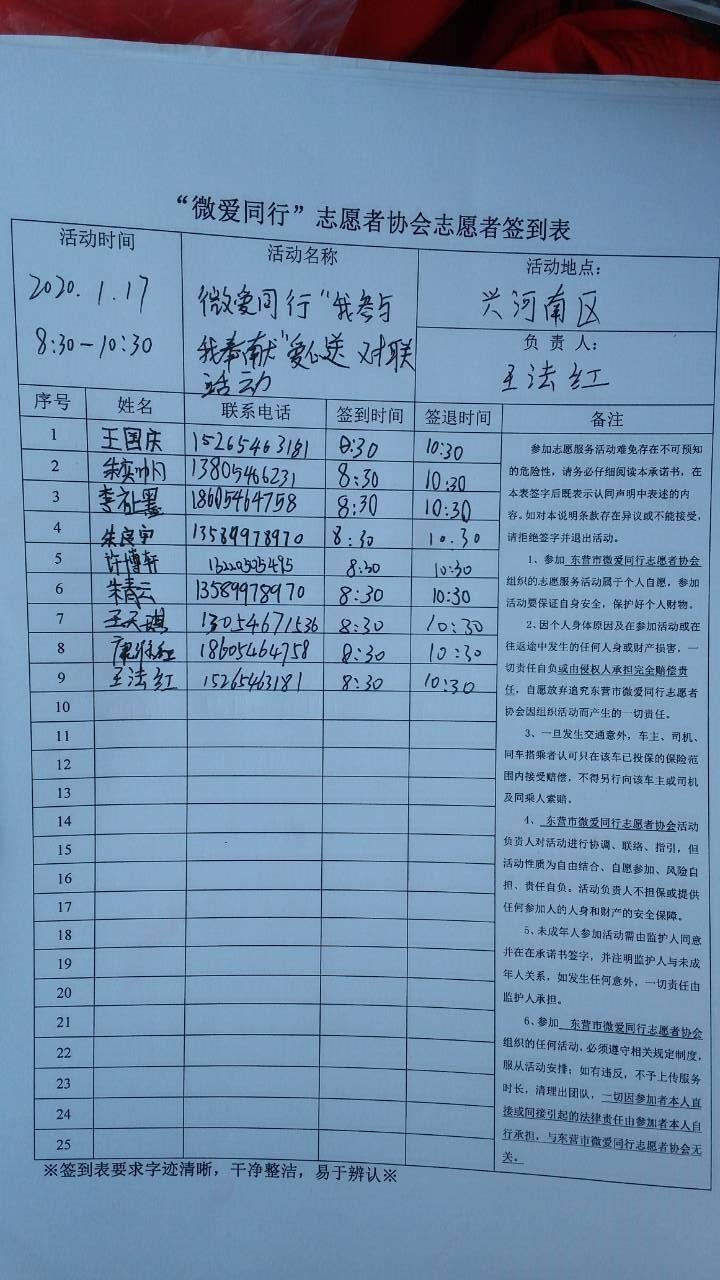 “微爱同行”志愿者协会志愿者签到表
活动时间
2020.1.17
8:30-10:30
活动名称
微爱同行“我参与
我奉献”爱心送对联
活动
活动地点：
兴河南区
负责人：
王法红
序号 姓名 联系电话 签到时间 签退时间 备注
1 王国庆 15265463181 8:30 10:30
2 13805466231 8:30 10:30
3 18605464758 8:30 10:30
4 13589978970 8:30 10.30
5 许博轩 13220525495 8:30 10:30
6 朱青云 13589978970 8:30 10:30
7 王天琪 13054671536 8:30 10:30
8 18605464758 8:30 10:30
9 王法红 15265463181 8:30 10:30
10
11
12
13
14
15
16
17
18
19
20
21
22
23
24
25
参加志愿服务活动难免存在不可预知
的危险性，请务必仔细阅读本承诺书，在
本表签字后既表示认同声明中表述的内
容。如对本说明条款存在异议或不能接受，
请拒绝签字并退出活动。
1、参加 东营市微爱同行志愿者协会
组织的志愿服务活动属于个人自愿，参加
活动要保证自身安全，保护好个人财物。
2、因个人身体原因及在参加活动或在
往返途中发生的任何人身或财产损害，一
切责任自负或由侵权人承担完全赔偿责
任，自愿放弃追究东营市微爱同行志愿者
协会因组织活动而产生的一切责任。
3、一旦发生交通意外，车主、司机、
同车搭乘者认可只在该车已投保的保险范
围内接受赔偿，不得另行向该车主或司机
及同乘人索赔。
4、 东营市微爱同行志愿者协会活动
负责人对活动进行协调、联络、指引，但
活动性质为自由结合、自愿参加、风险自
担、责任自负。活动负责人不担保或提供
任何参加人的人身和财产的安全保障。
5、未成年人参加活动需由监护人同意
并在在承诺书签字，并注明监护人与未成
年人关系，如发生任何意外，一切责任由
监护人承担。
6、参加 东营市微爱同行志愿者协会
组织的任何活动，必须遵守相关规定制度，
服从活动安排；如有违反，不予上传服务
时长，清理出团队，一切因参加者本人直
接或间接引起的法律责任由参加者本人自
行承担，与东营市微爱同行志愿者协会无
关。
※签到表要求字迹清晰，干净整洁，易于辨认※